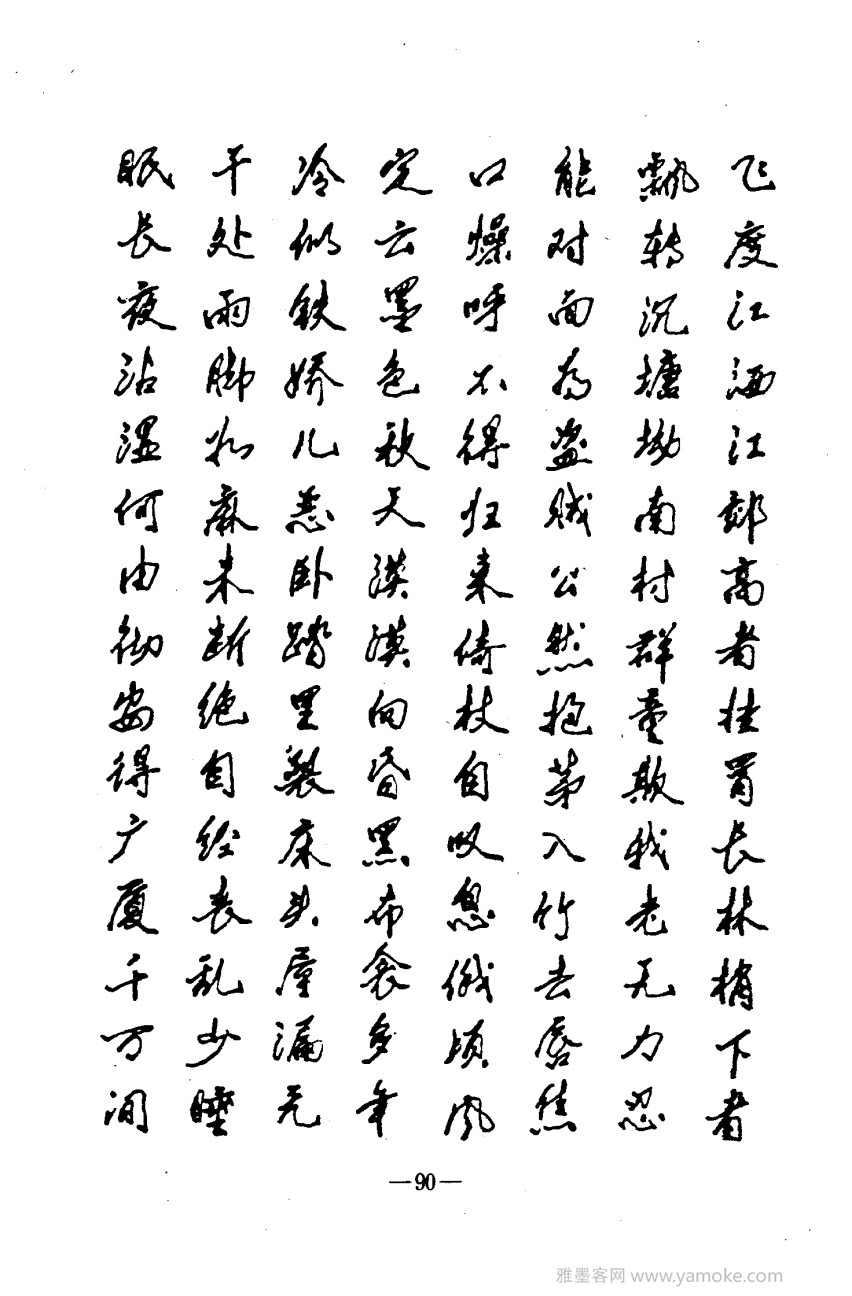 飞度江洒江郊高者挂罥长林梢下者
飘转沉塘坳南村群童欺我老无力忍
能对面为盗贼公然抱茅入竹去唇焦
口燥呼不得归来倚杖自叹息俄顷风
定云墨色秋天漠漠向昏黑布衾多年
冷似铁娇儿恶卧踏里裂床头屋漏无
干处雨脚如麻未断绝自经丧乱少睡
眠长夜沾湿何由彻安得广厦千万间
—90—
雅墨客网 www.yamoke.com